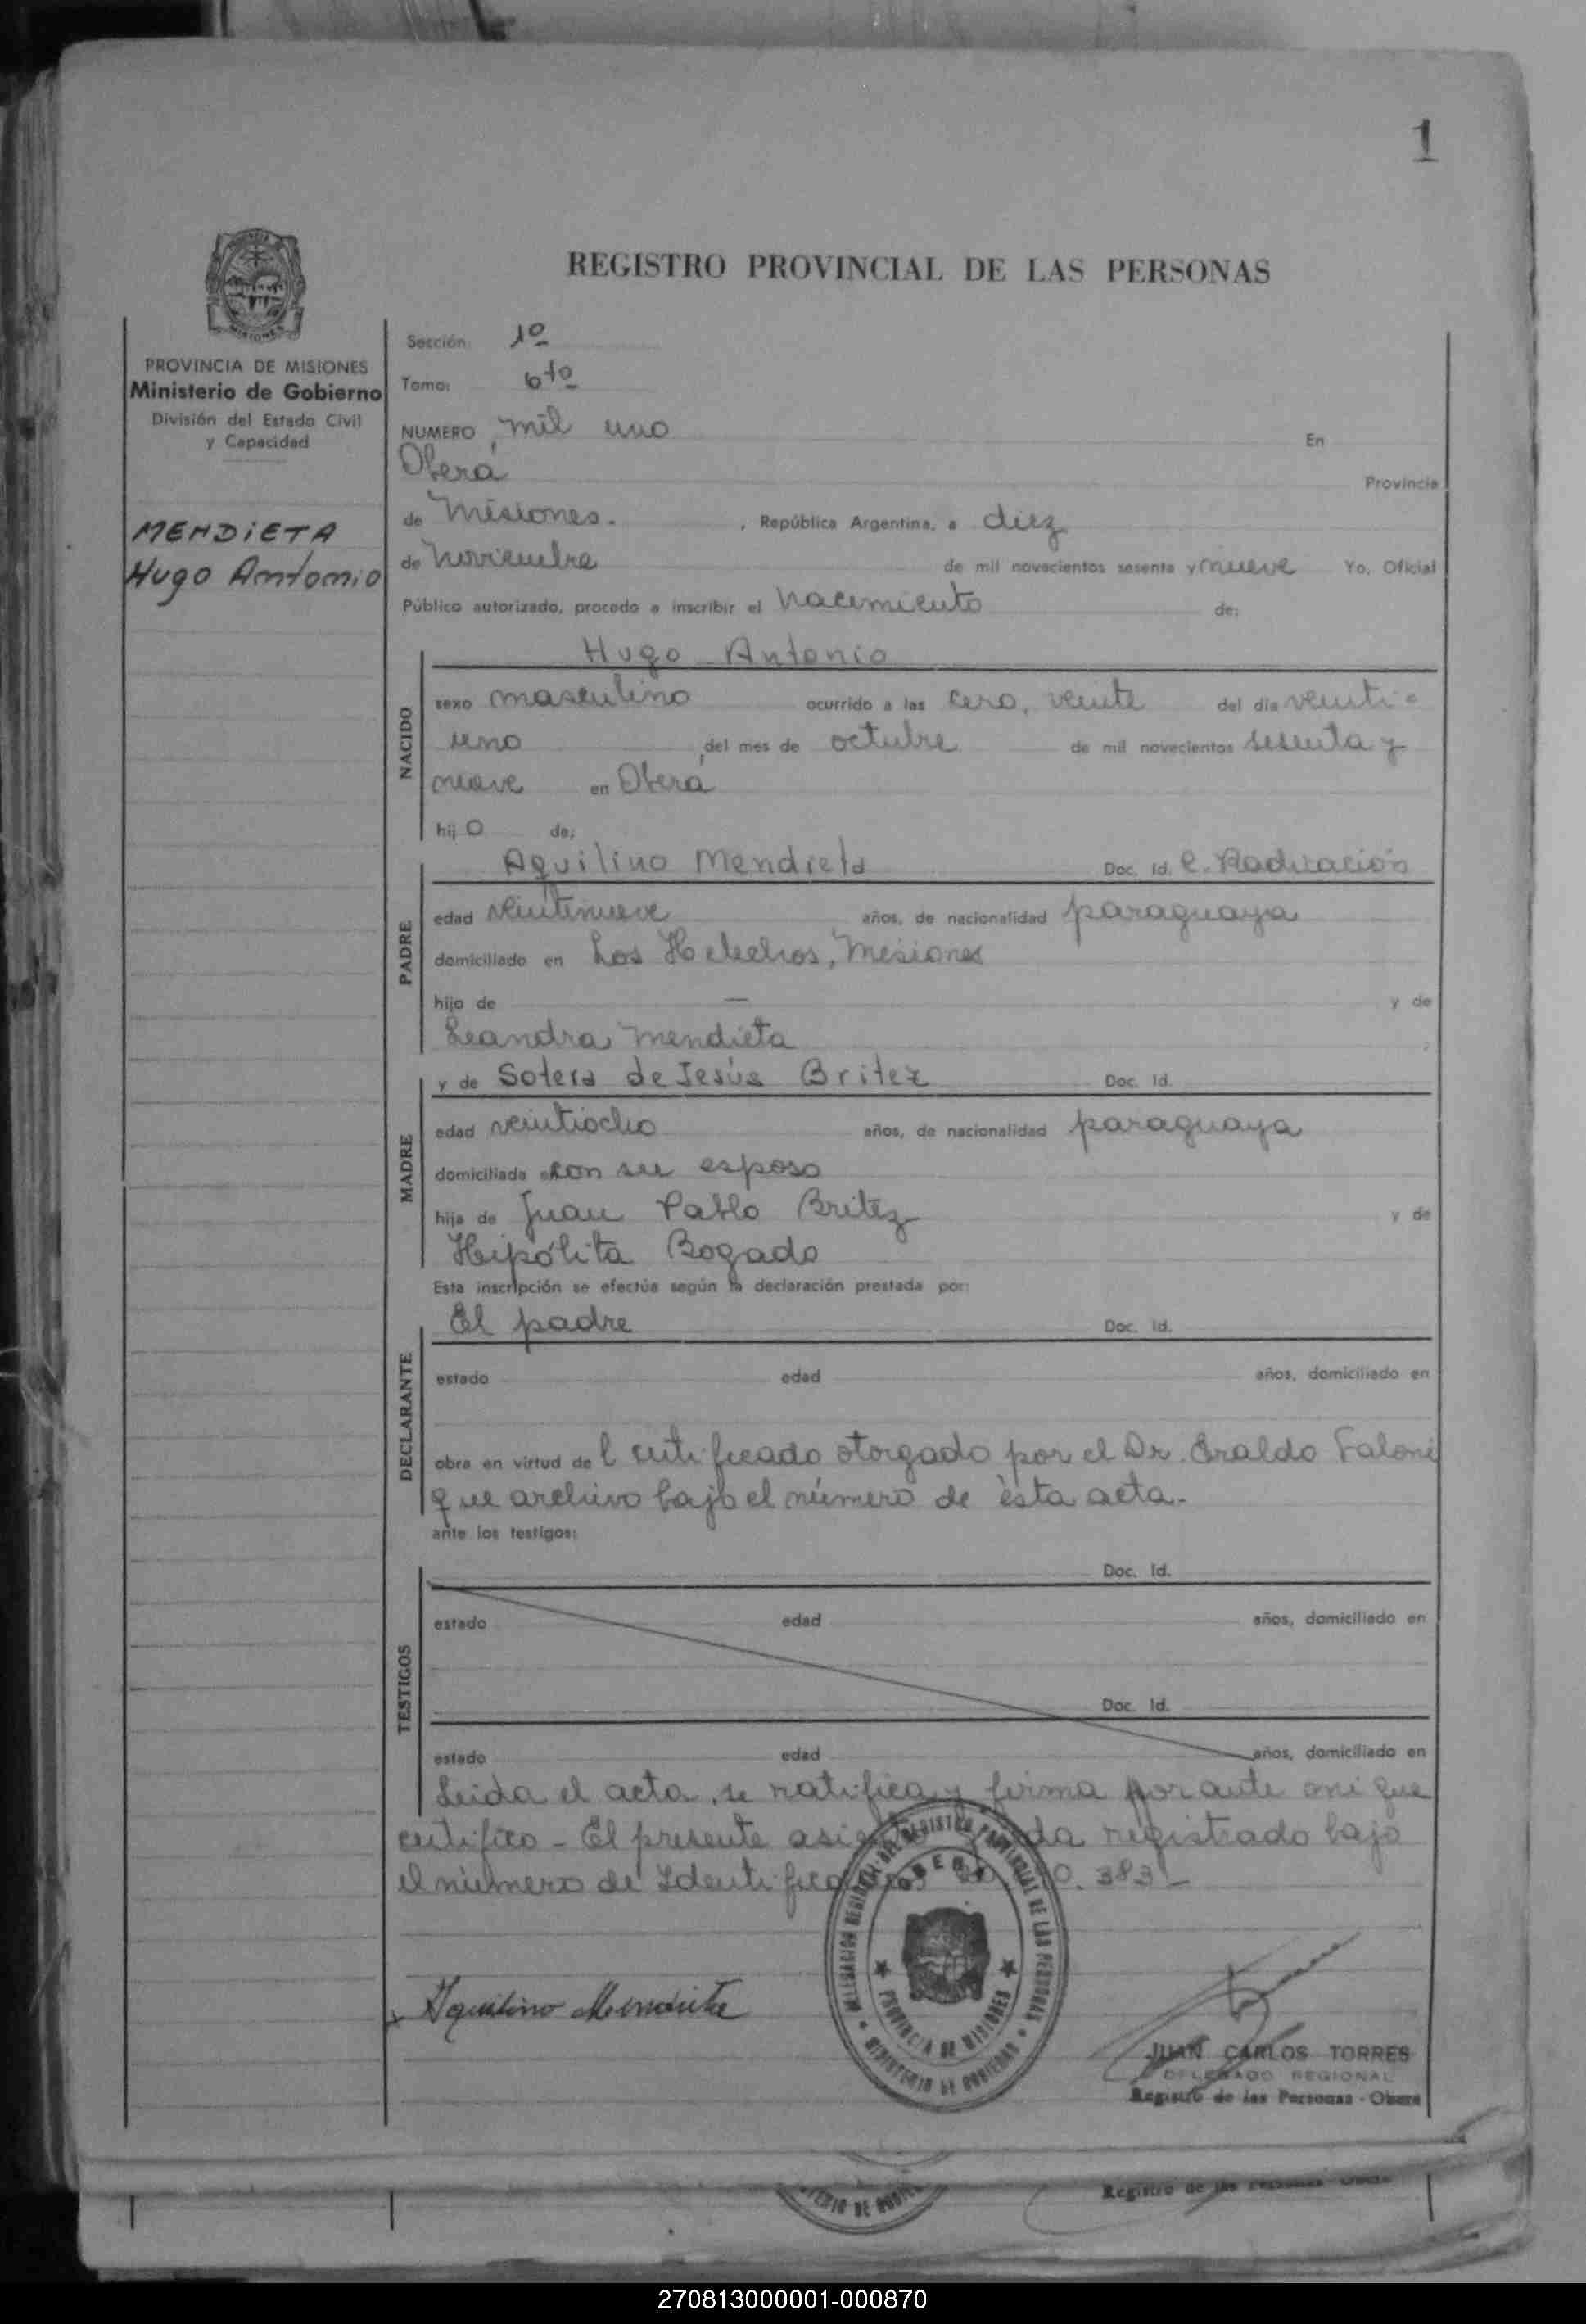 1
REGISTRO PROVINCIAL DE LAS PERSONAS
MISIONES
PROVINCIA DE MISIONES
Ministerio de Gobierno
División del Estado Civil
y Capacidad
MENDIETA
Hugo Antonio
Sección: 1º
Tomo: 6tº
NUMERO mil uno En
Oberá Provincia
de Misiones. , República Argentina, a diez
de noviembre de mil novecientos sesenta y nueve Yo, Oficial
Público autorizado, procedo a inscribir el nacimiento de:
NACIDO
Hugo Antonio
sexo masculino ocurrido a las cero, veinte del día veinti-
uno del mes de octubre de mil novecientos sesenta y
nueve en Oberá
hijo de:
PADRE
Aquilino Mendieta Doc. Id. C. Radicación
edad veintinueve años, de nacionalidad paraguaya
domiciliado en Los Helechos, Misiones
hijo de — y de
Leandra Mendieta
MADRE
y de Sotera de Jesús Britez Doc. Id.
edad veintiocho años, de nacionalidad paraguaya
domiciliada con su esposo
hija de Juan Pablo Britez y de
Hipólita Bogado
Esta inscripción se efectúa según la declaración prestada por:
DECLARANTE
El padre Doc. Id.
estado edad años, domiciliado en
obra en virtud del certificado otorgado por el Dr. Eraldo
que archivo bajo el número de ésta acta.-
ante los testigos:
TESTIGOS
Doc. Id.
estado edad años, domiciliado en
Doc. Id.
estado edad años, domiciliado en
Leida el acta, se ratifica y firma por ante mi que
certifico - El presente registrado bajo
el número de 383-
DELEGACION REGIONAL DEL REGISTRO PROVINCIAL DE LAS PERSONAS
OBERA
PROVINCIA DE MISIONES
MINISTERIO DE GOBIERNO
Aquilino Mendieta
JUAN CARLOS TORRES
DELEGADO REGIONAL
Registro de las Personas - Oberá
Registro de las Personas
270813000001-000870